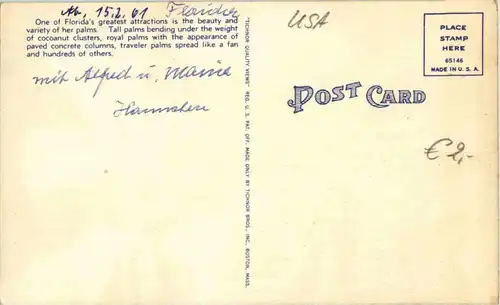 15.2.61 Florida
One of Florida's greatest attractions is the beauty and
variety of her palms. Tall palms bending under the weight
of cocoanut clusters, royal palms with the appearance of
paved concrete columns, traveler palms spread like a fan
and hundreds of others.
mit Alfred u. Maria
"TICHNOR QUALITY VIEWS" REG. U. S. PAT. OFF. MADE ONLY BY TICHNOR BROS., INC., BOSTON, MASS.
USA
POST CARD
PLACE
STAMP
HERE
65146
MADE IN U. S. A.
€ 2,-